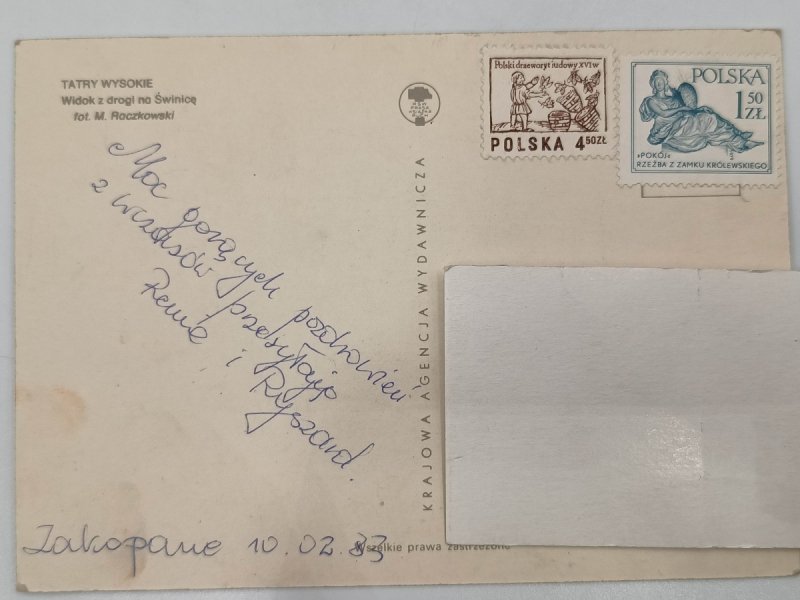 TATRY WYSOKIE
Widok z drogi na Świnicę
fot. M. Raczkowski
Polski drzeworyt ludowy XVI w
POLSKA 4 50 ZŁ
POLSKA
1 50
ZŁ
»POKÓJ«
RZEŹBA Z ZAMKU KRÓLEWSKIEGO
KRAJOWA AGENCJA WYDAWNICZA
Moc gorących pozdrowień
z wczasów przesyłają
Renia i Ryszard.
Zakopane 10.02.83
Wszelkie prawa zastrzeżone